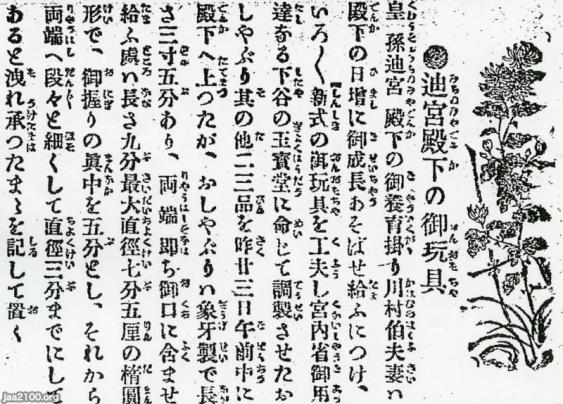 ◉迪宮殿下の御玩具
皇孫迪宮殿下の御養育掛り川村伯夫妻ハ
殿下の日增に御成長あそばせ給ふにつけ、
いろ〱新式の御玩具を工夫し宮内省御用
達なる下谷の玉寶堂に命じて調製させたお
しやぶり其の他二三品を昨廿三日午前中に
殿下へ上つたが、おしやぶりハ象牙製で長
さ三寸五分あり、両端即ち御口に含ませ
給ふ處ハ長さ九分最大直徑七分五厘の楕圓
形で、御握りの眞中を五分とし、それから
両端へ段々と細くして直徑三分までにして
あると洩れ承つたまゝを記して置く
Jaa2100.org